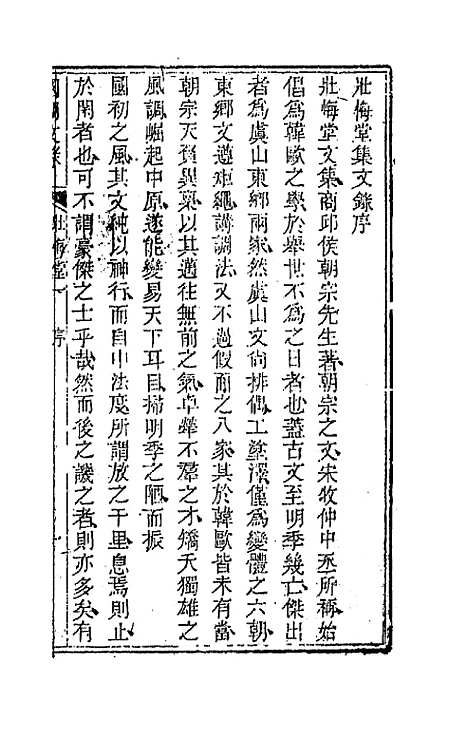 壯悔堂集文錄序
壯悔堂文集商邱侯朝宗先生著朝宗之文宋牧仲中丞所稱始
倡為韓歐之學於舉世不為之日者也蓋古文至明季幾亡傑出
者為虞山東鄉兩家然虞山文尚排偶工塗澤僅為變體之六朝
東鄉文遵矩繩講調法又不過假面之八家其於韓歐皆未有當
朝宗天資異稟以其邁往無前之氣卓犖不羣之才矯夭獨雄之
風調崛起中原遂能變易天下耳目掃明季之陋而振
國初之風其文純以神行而自中法度所謂放之千里息焉則止
於閑者也可不謂豪傑之士乎哉然而後之譏之者則亦多矣有
國朝文錄
壯悔堂
序